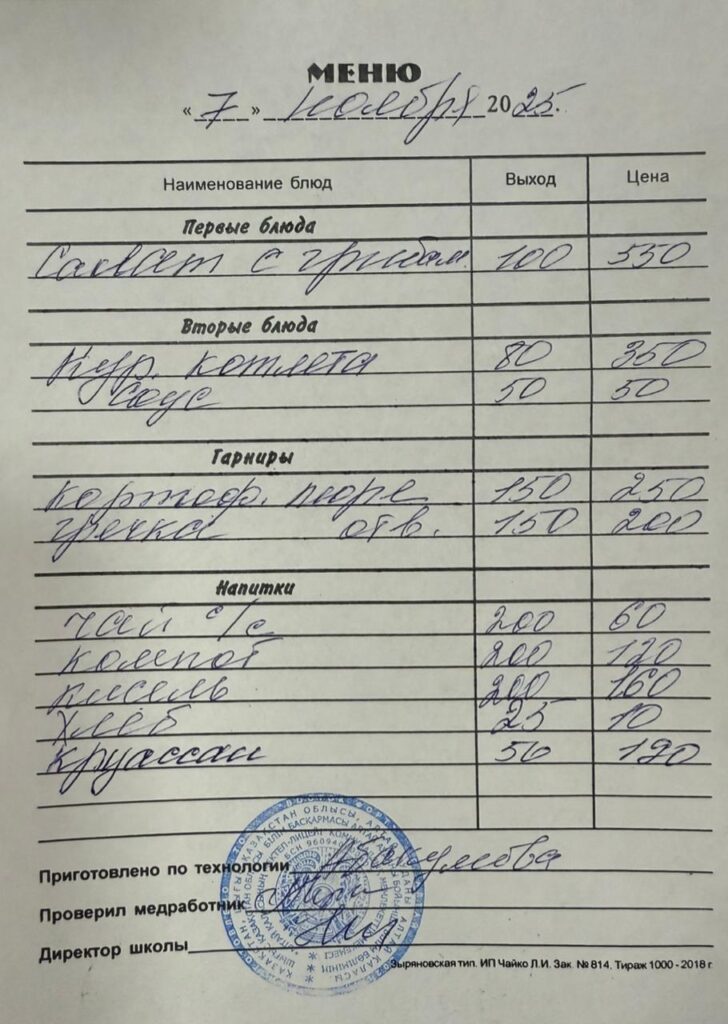 МЕНЮ
«7» ноября 2025г.
Наименование блюд Выход Цена
Первые блюда
Салат с грибам 100 550
Вторые блюда
Кур. котлета 80 350
Соус 50 50
Гарниры
картоф. пюре 150 250
гречка отв. 150 200
Напитки
чай с/с 200 60
компот 200 120
кисель 200 160
хлеб 25 10
круассан 50 120
Приготовлено по технологии
Проверил медработник
Директор школы
Зыряновская тип. ИП Чайко Л.И. Зак. № 814. Тираж 1000 - 2018 г.